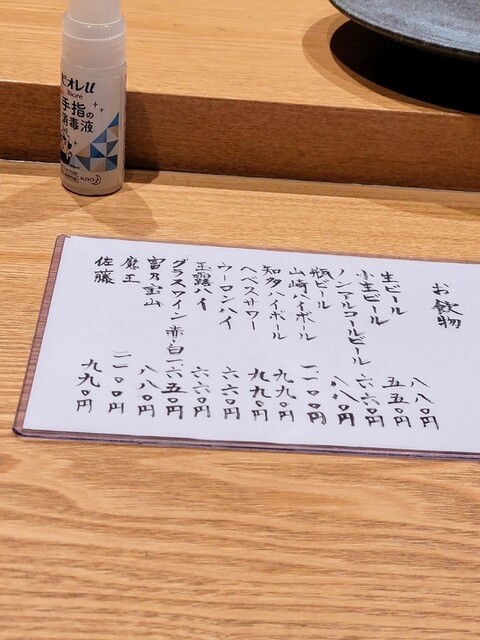 ビオレu
Biore
手指の
消毒液
Kao
お飲物
生ビール 八八〇円
小生ビール 五五〇円
ノンアルコールビール 六六〇円
瓶ビール 八八〇円
山崎ハイボール 一一〇〇円
知多ハイボール 九九〇円
ヘベスサワー 九九〇円
ウーロンハイ 六六〇円
玉露ハイ 六六〇円
グラスワイン 赤・白 一六五〇円
富乃宝山 八八〇円
魔王 一一〇〇円
佐藤 九九〇円